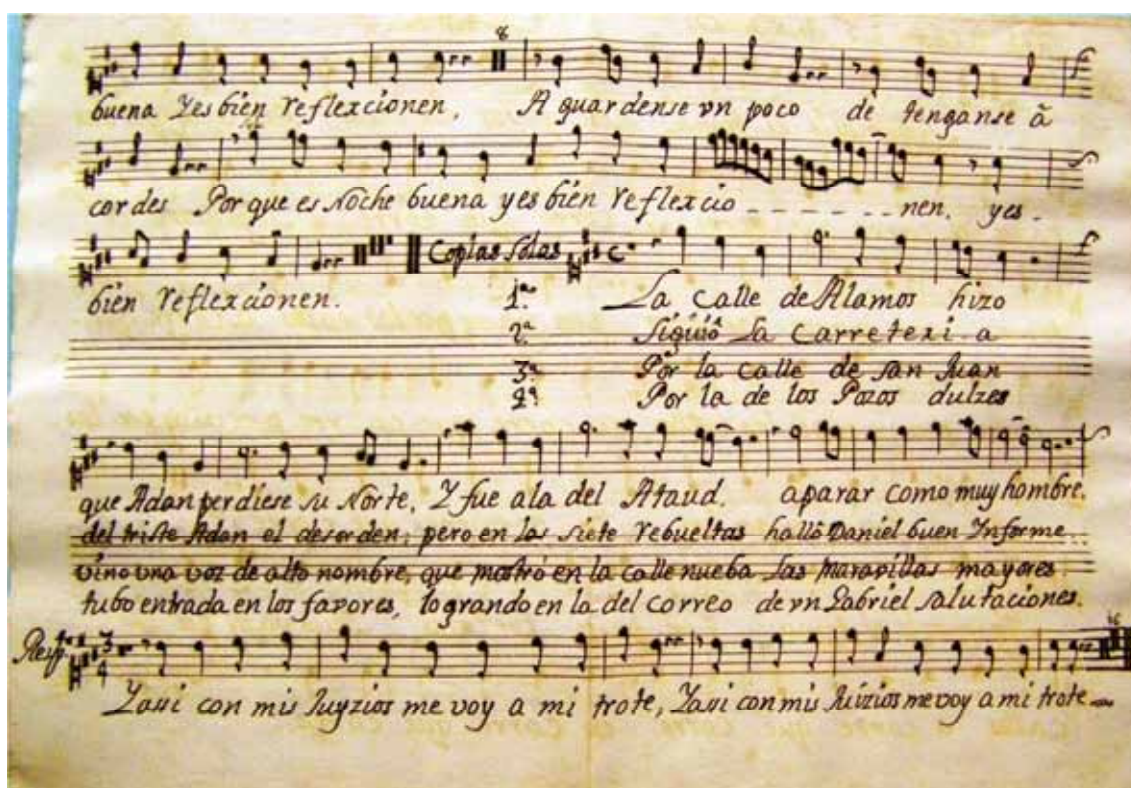 8
buena Yes bien reflexcionen, A guardense vn poco de tenganse â
cordes Por que es Noche buena yes bien reflexcio - - - - - - nen, yes -
Coplas Solas
bien reflexcionen. 1.ª La calle de Alamos hizo
2.ª Siguiô La Carreteri - a
3.ª Por la calle de san Juan
4.ª Por la de los Pozos dulzes
que Adan perdiese su Norte, Y fue ala del Ataud. aparar como muy hombre.
del triste Adan el desorden; pero en las siete rebueltas hallô Daniel buen Ynforme
vino una voz de alto nombre, que mostrô en la calle nueba las maravillas mayores
tubo entrada en los favores, logrando en la del correo de vn Gabriel salutaciones.
Resp.ta 3 4 16
Yasi con mis Juyzios me voy a mi trote, Yasi con mis Juizios me voy a mi trote